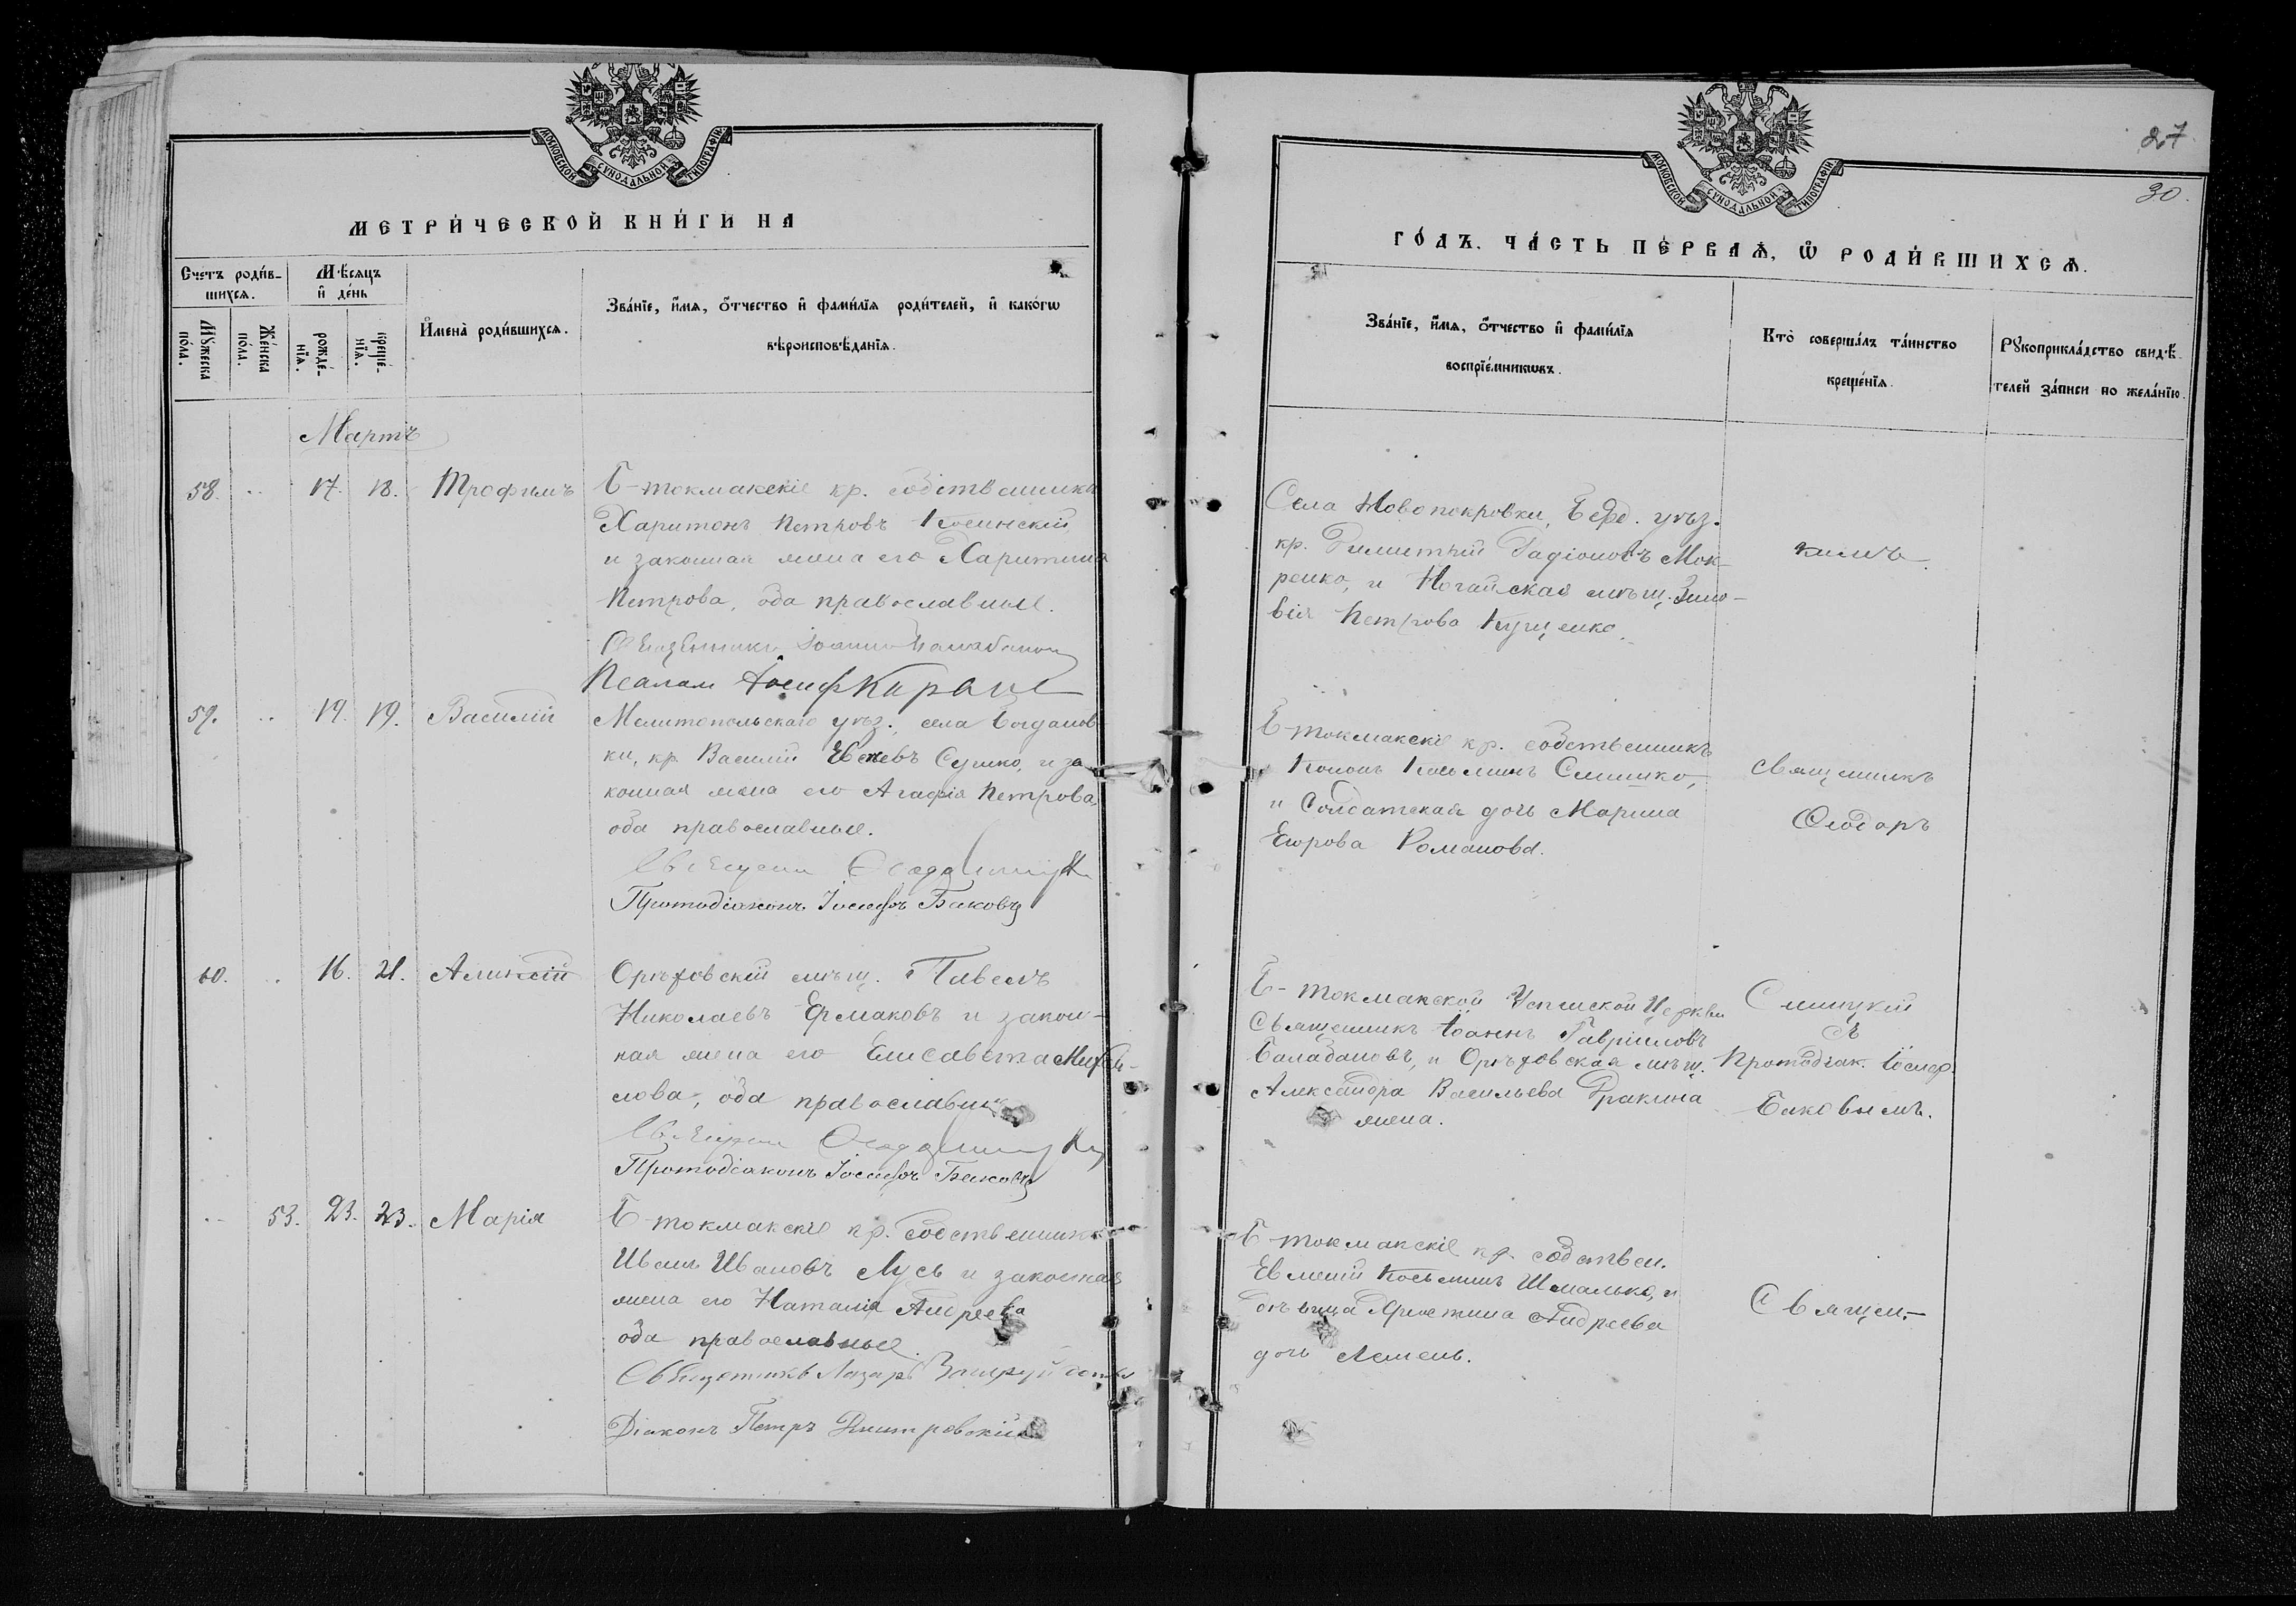 МОСКОВСКОЙ СѴНОДАЛЬНОЙ ТИПОГРАФІИ
МЕТРИ́ЧЕСКОЙ КНИ́ГИ НА
Счетъ роди́в-
шихсѧ.
Мѣ́сѧцъ
и҆ де́нь
И҆мена̀ роди́вшихсѧ.
Зва́нїе, и҆́мѧ, ѻ҆́тчество и҆ фами́лїѧ роди́телей, и҆ како́гѡ
вѣроисповѣ́данїѧ.
Мꙋ́жеска
по́ла.
Же́нска
по́ла.
рожде́-
нїѧ.
креще́-
нїѧ.
Мартъ
58. .. 17. 18. Трофимъ
Б-токмакскіе кр. собственники
Харитонъ Петровъ
и законная жена его Харитина
Петрова, оба православные.
Священникъ Іоаннъ
Псалом Іосиф
59. .. 19. 19. Василій
Мелитопольскаго уѣз., села Богданов-
ки, кр. Василій Сушко, и за-
конная жена его Агафія Петрова,
оба православные.
Протодіаконъ Іосифъ Баковъ
60. .. 16. 21. Алексій
Орѣховскій мѣщ. Павелъ
Николаевъ Ермаковъ и закон-
ная жена его Елисавета Михаи-
лова, оба православные
Протодіаконъ Іосифъ Баковъ
.. 53. 23. 23. Марія
Б-токмакскіе кр. собственники
Иванъ Ивановъ Лусь и законная
жена его Наталія Андреева
оба православные.
Священникъ Лазарь
Діаконъ Петръ Дмитровскій
27
30.
МОСКОВСКОЙ СѴНОДАЛЬНОЙ ТИПОГРАФІИ
ГО́ДЪ. ЧА́СТЬ ПЕ́РВАѦ, Ѡ҆ РОДИ́ВШИХСѦ.
Зва́нїе, и҆́мѧ, ѻ҆́тчество и҆ фами́лїѧ
воспрїе́мникѡвъ.
Кто̀ соверша́лъ та́инство
креще́нїѧ.
Рꙋкоприкла́дство свидѣ́-
телей за́писи по жела́нїю.
Села Новопокровки, Берд. уѣз.
кр. Димитрій Радіоновъ Мок-
ренко, и Ногайская мѣщ. Зино-
вія Петрова Куценко.
Б-токмакскіе кр. собственникъ
Кононъ Косьминъ
и Солдатская дочь Марина
Егорова Романова.
Священникъ
Ѳеодоръ
Б-токмакской Успенской Церкви
Священникъ Іоаннъ Гавріиловъ
Балабановъ, и Орѣховская мѣщ.
Александра Васильева Дракина
жена.
съ
Протодіак. Іосиф.
Баковымъ.
Б-токмакскіе кр. собствен.
Евменій Косьминъ Шмалько, и
дѣвица Андреева
дочь Лемень.
Священ.-